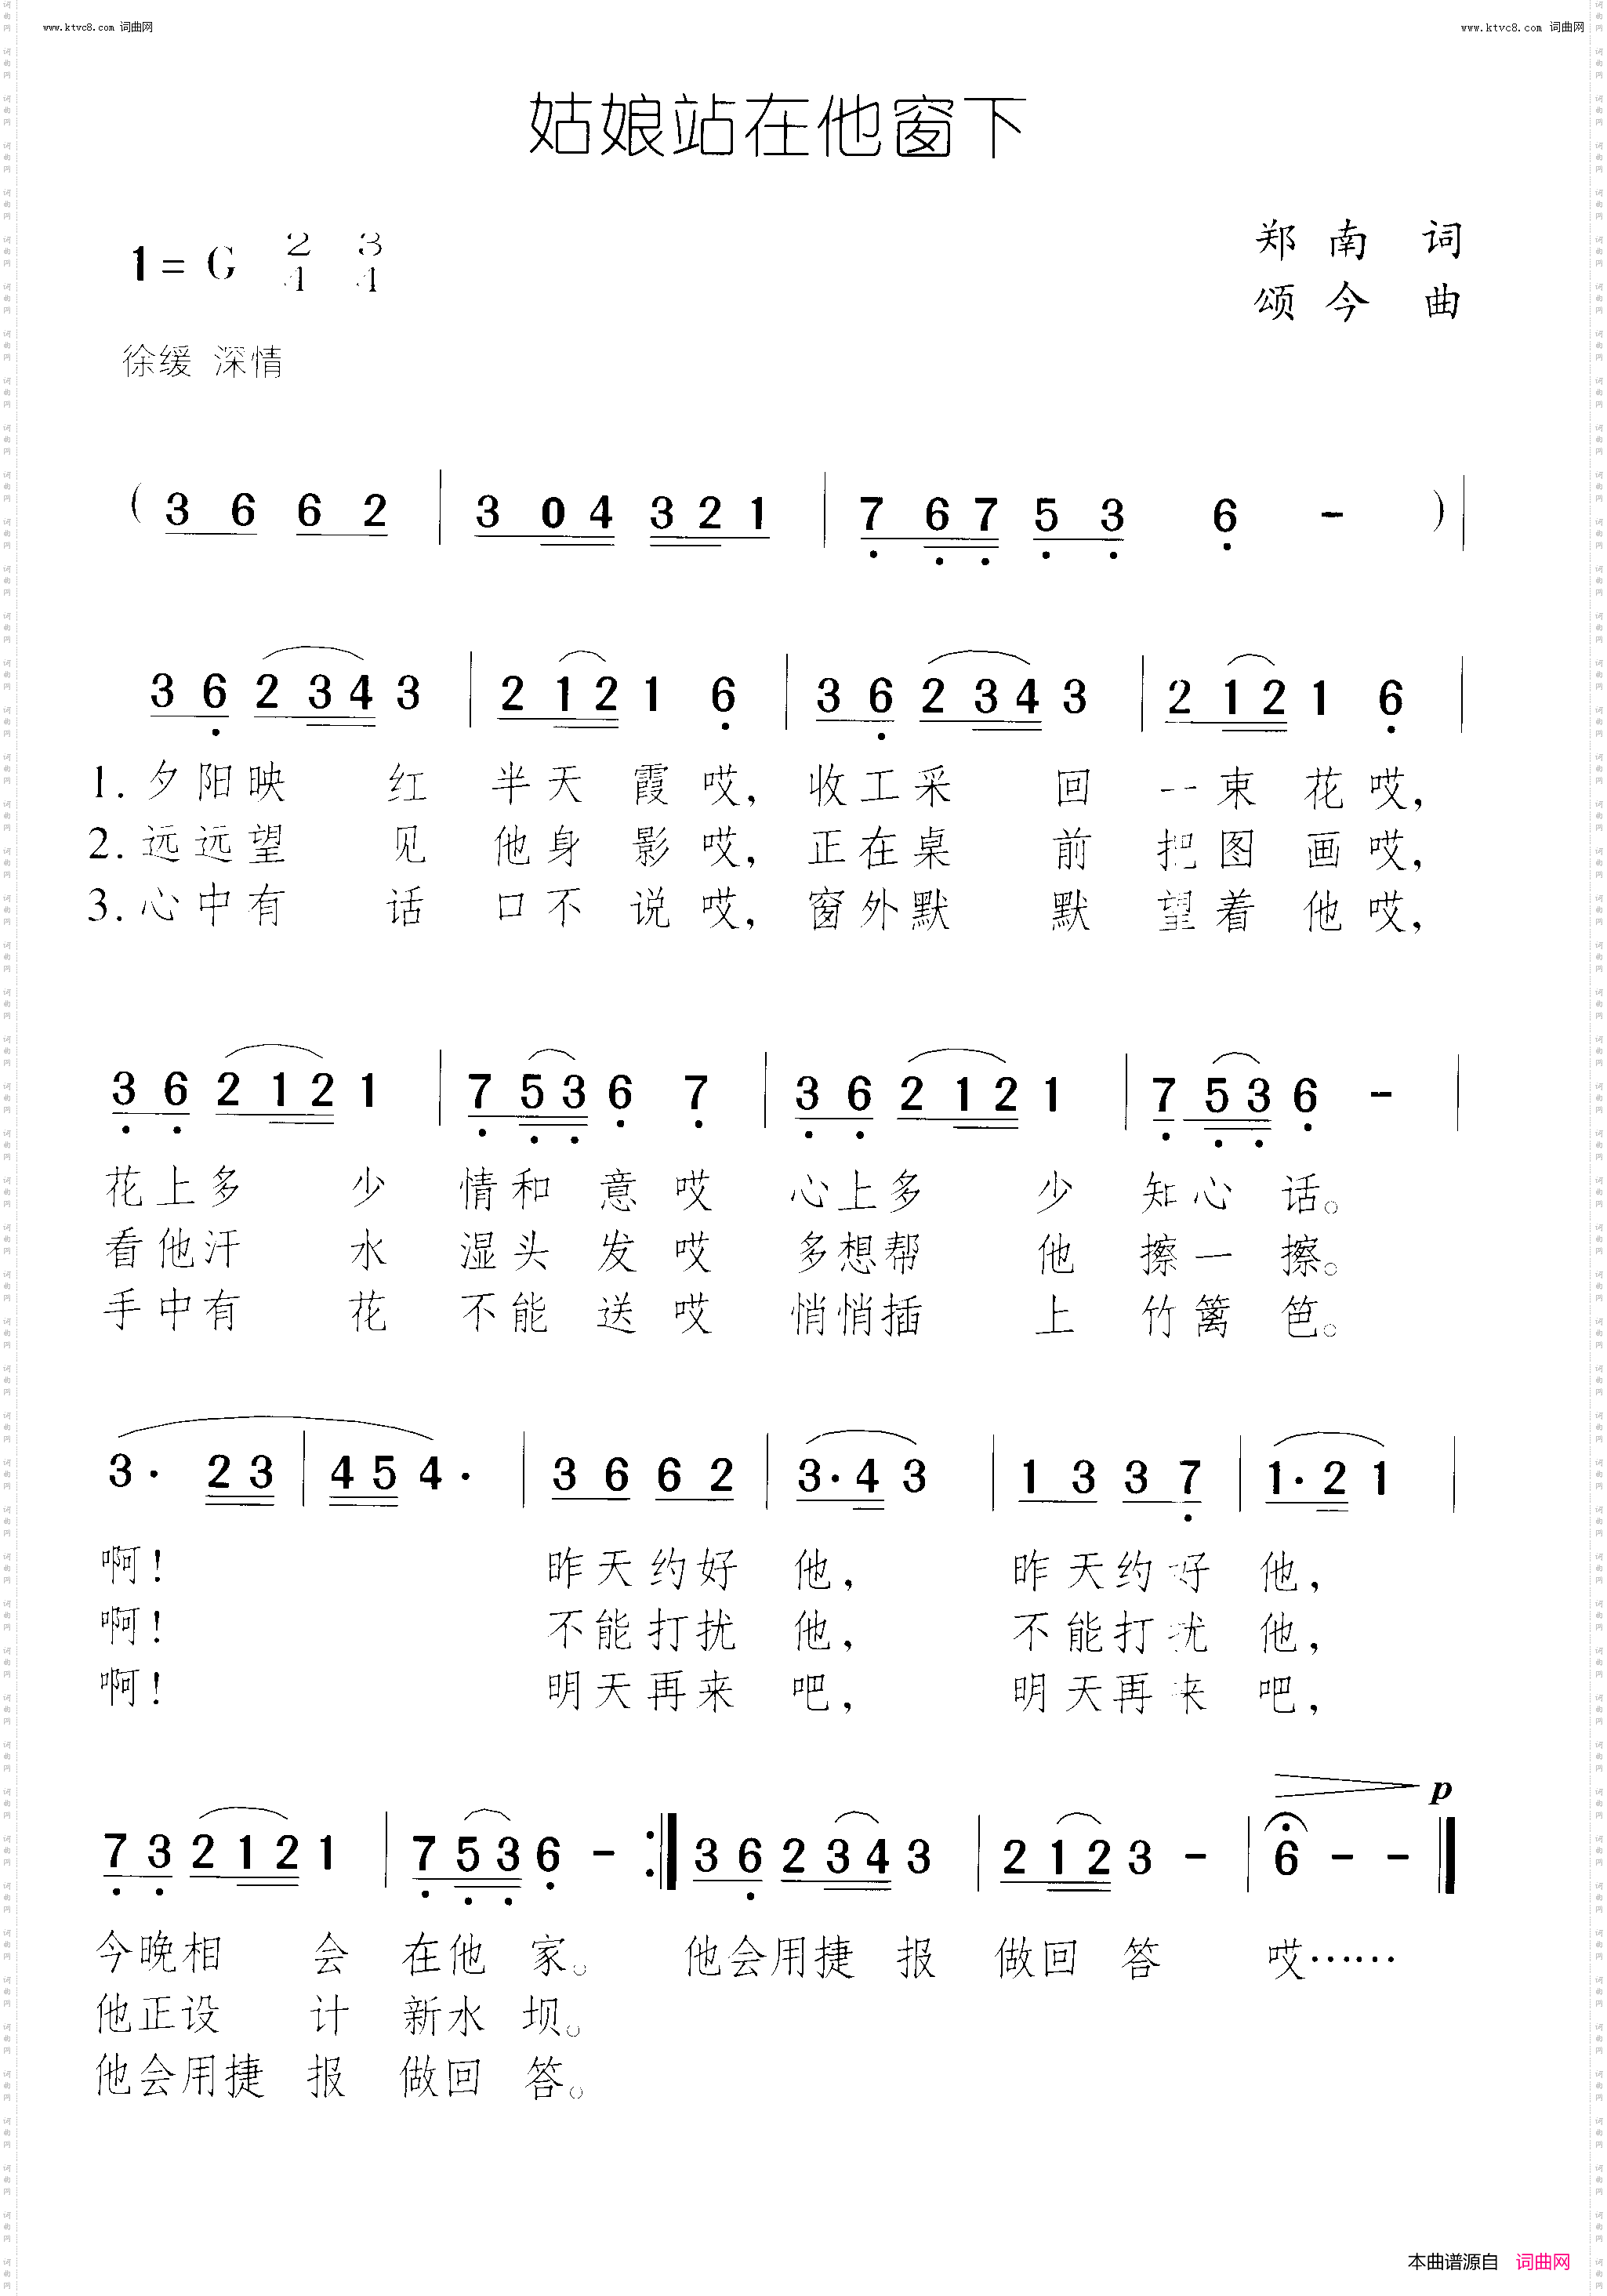 www.ktvc8.com 词曲网 www.ktvc8.com 词曲网
姑娘站在他窗下
1=G 2/4 3/4 郑南 词
颂今 曲
徐缓 深情
( 3 6 6 2 | 3 0 4 3 2 1 | 7 6 7 5 3 6 - ) |
3 6 2 3 4 3 | 2 1 2 1 6 | 3 6 2 3 4 3 | 2 1 2 1 6 |
1. 夕阳映 红 半天 霞哎, 收工采 回 一束 花哎,
2. 远远望 见 他身 影哎, 正在桌 前 把图 画哎,
3. 心中有 话 口不 说哎, 窗外默 默 望着 他哎,
3 6 2 1 2 1 | 7 5 3 6 7 | 3 6 2 1 2 1 | 7 5 3 6 - |
花上多 少 情和 意 哎 心上多 少 知心 话。
看他汗 水 湿头 发 哎 多想帮 他 擦一 擦。
手中有 花 不能 送 哎 悄悄插 上 竹篱 笆。
3· 2 3 | 4 5 4· | 3 6 6 2 | 3·4 3 | 1 3 3 7 | 1·2 1 |
啊! 昨天约好 他, 昨天约好 他,
啊! 不能打扰 他, 不能打扰 他,
啊! 明天再来 吧, 明天再来 吧,
p
7 3 2 1 2 1 | 7 5 3 6 - :| 3 6 2 3 4 3 | 2 1 2 3 - | 6 - - ‖
今晚相 会 在他 家。 他会用捷 报 做回 答 哎……
他正设 计 新水 坝。
他会用捷 报 做回 答。
本曲谱源自 词曲网